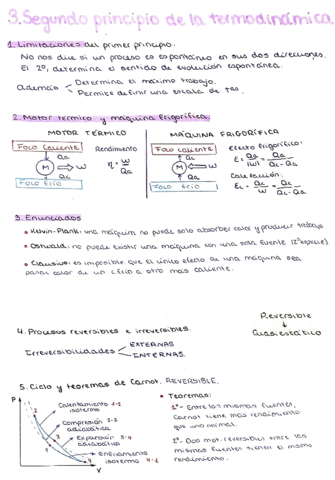 3. Segundo principio de la termodinámica
1. Limitaciones del primer principio.
No nos dice si un proceso es espontáneo en sus dos direcciones.
El 2º, determina el sentido de evolución espontánea.
Además
Determina el máximo trabajo.
Permite definir una escala de tas.
2. Motor térmico y máquina frigorífica.
MOTOR TÉRMICO
Foco caliente
Qa
M
W
Qc
Foco frío
Rendimiento
η = W/Qa
MÁQUINA FRIGORÍFICA
Foco caliente
Qc
M
W
Qa
Foco frío
Efecto frigorífico:
Calefacción:
3. Enunciados
• Kelvin-Plank: una máquina no puede solo absorber calor y producir trabajo.
• Ostwald: no puede existir una máquina con una sola fuente (2ª especie).
• Clausius: es imposible que el único efecto de una máquina sea
pasar calor de un c.frío a otro más caliente.
4. Procesos reversibles e irreversibles.
Reversible
↓
Cuasiestático
Irreversibilidades
EXTERNAS
INTERNAS.
5. Ciclo y teoremas de Carnot. REVERSIBLE.
P
Calentamiento 1-2
isotermo
Compresión 2-3
adiabática
Expansión 3-4
adiabática
enfriamiento
isotermo
V
• Teoremas:
1º- Entre las mismas fuentes,
Carnot tiene más rendimiento
que uno normal.
2º- Dos mot. reversibles entre las
mismas fuentes tienen el mismo
rendimiento.